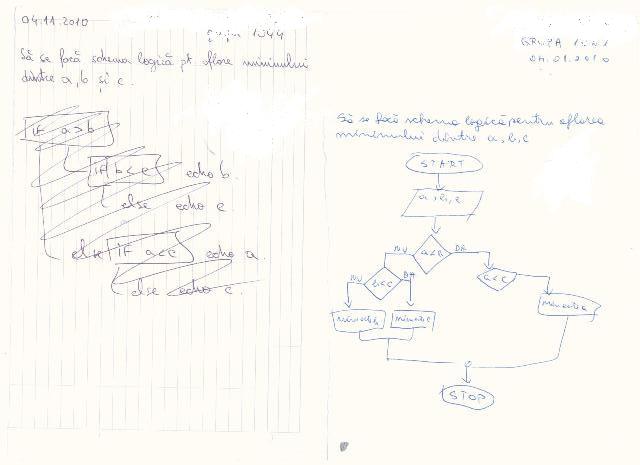 04.11.2010
1044
Să se facă schema logică pt. aflore minimului
dintre a, b și c.
IF a>b
IF b<c echo b.
else echo c.
else IF a<c echo a.
else echo c.
GRUPA
04.01.2010
Să se facă schema logică pentru aflarea
minimului dintre a, b, c
START
a, b, c
NU a<b DA
a<c
b<c DA
NU
STOP